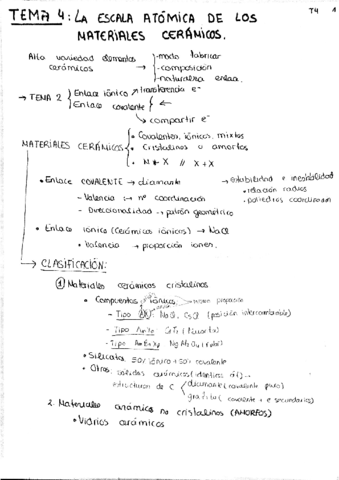 T4 1
TEMA 4: LA ESCALA ATÓMICA DE LOS
MATERIALES CERÁMICOS.
Alta variedad elementos
cerámicos → - modo fabricar
- composición
- naturaleza enlace.
→ TEMA 2 Enlace iónico transferencia e⁻
Enlace covalente ←
compartir e⁻
MATERIALES CERÁMICOS • Covalentes, iónicos, mixtos
• Cristalinos o amorfos
• M + X // X + X
• Enlace COVALENTE → diamante → estabilidad e inestabilidad
- Valencia → nº coordinación • relación radios
- Direccionalidad → patrón geométrico • poliedros coordinación
• Enlace iónico (Cerámicos iónicos) → NaCl
• Valencia → proporción iones.
→ CLASIFICACIÓN:
① Materiales cerámicos cristalinos
• Compuestos iónicos → misma proporción
- Tipo AX NaCl, CsCl (posición intercambiable)
- Tipo AmXp
- Tipo AmBnXp
• Silicatos 50% iónico + 50% covalente
• Otros sólidos cerámicos
estructuras de C diamante (covalente puro)
grafito (covalente + e secundarios)
2. Materiales cerámicos no cristalinos (AMORFOS)
• Vidrios cerámicos